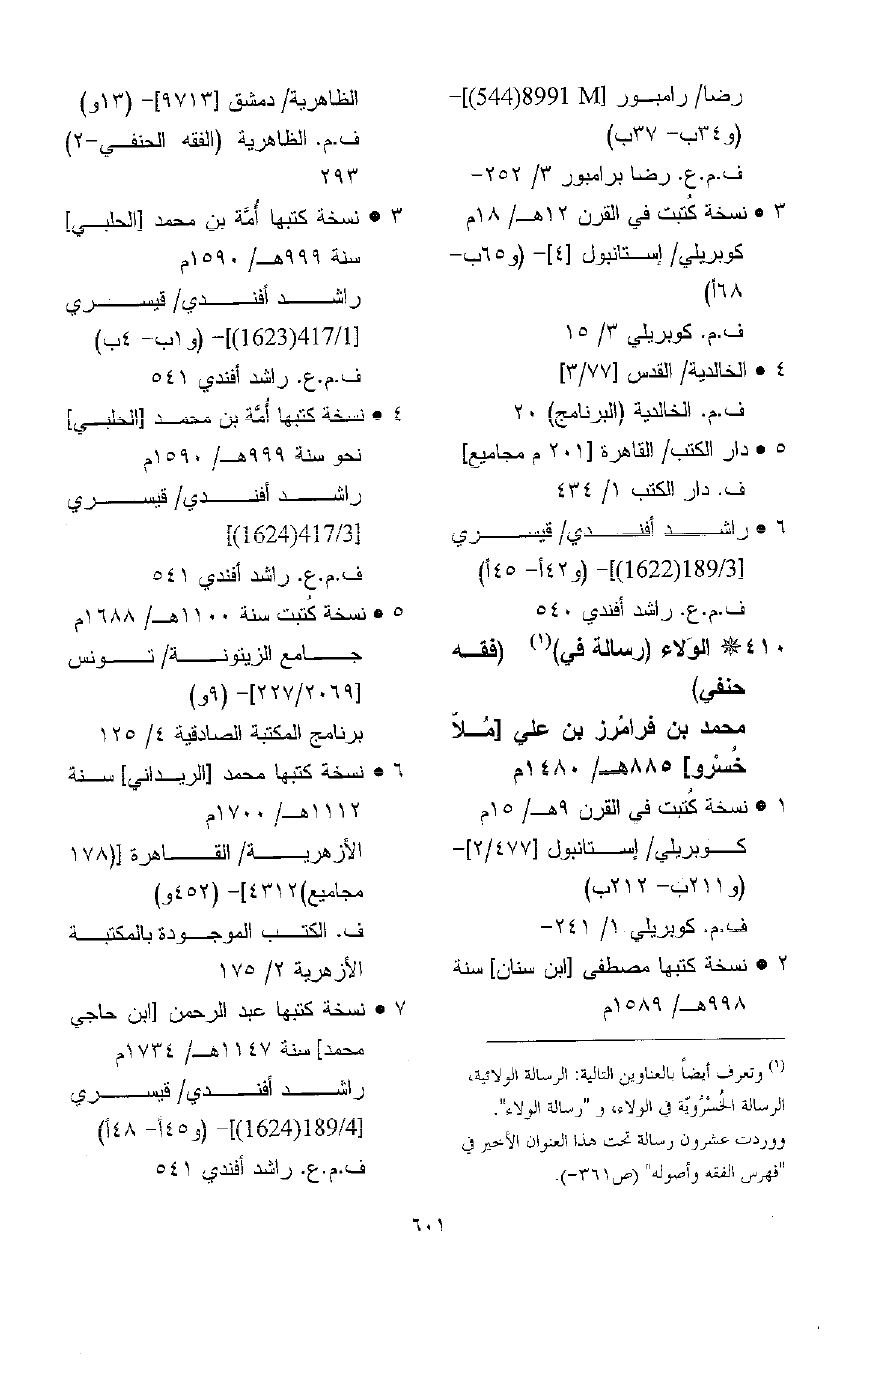 رضا/ رامبور [M 8991(544)]-
(و٣٤ب- ٣٧ب)
ف.م.ع. رضا برامبور ٣/ ٢٥٢-
٣ • نسخة كُتبت في القرن ١٢هـ/ ١٨م
كوبريلي/ إستانبول [٤]- (و٦٥ب-
٦٨أ)
ف.م. كوبريلي ٣/ ١٥
٤ • الخالدية/ القدس [٣/٧٧]
ف.م. الخالدية (البرنامج) ٢٠
٥ • دار الكتب/ القاهرة [٢٠١ م مجاميع]
ف. دار الكتب ١/ ٤٣٤
٦ • راشد أفندي/ قيسري
[189/3(1622)]- (و٤٢أ- ٤٥أ)
ف.م.ع. راشد أفندي ٥٤٠
٤١٠ ❋ الوَلاء (رسالة في)(١) (فقه
حنفي)
محمد بن فرامُرز بن علي [مُلاّ
خُسْرو] ٨٨٥هـ/ ١٤٨٠م
١ • نسخة كُتبت في القرن ٩هـ/ ١٥م
كوبريلي/ إستانبول [٢/٤٧٧]-
(و٢١١ب- ٢١٢ب)
ف.م. كوبريلي ١/ ٢٤١-
٢ • نسخة كتبها مصطفى [ابن سنان] سنة
٩٩٨هـ/ ١٥٨٩م
(١) وتعرف أيضاً بالعناوين التالية: الرسالة الولائية،
الرسالة الخُسْرُويّة في الولاء، و "رسالة الولاء".
ووردت عشرون رسالة تحت هذا العنوان الأخير في
"فهرس الفقه وأصوله" (ص٣٦١-).
الظاهرية/ دمشق [٩٧١٣]- (١٣و)
ف.م. الظاهرية (الفقه الحنفي-٢)
٢٩٣
٣ • نسخة كتبها أُمَّة بن محمد [الحلبي]
سنة ٩٩٩هـ/ ١٥٩٠م
راشد أفندي/ قيسري
[417/1(1623)]- (و١ب- ٤ب)
ف.م.ع. راشد أفندي ٥٤١
٤ • نسخة كتبها أُمَّة بن محمد [الحلبي]
نحو سنة ٩٩٩هـ/ ١٥٩٠م
راشد أفندي/ قيسري
[417/3(1624)]
ف.م.ع. راشد أفندي ٥٤١
٥ • نسخة كُتبت سنة ١١٠٠هـ/ ١٦٨٨م
جامع الزيتونة/ تونس
[٢٢٧/٢٠٦٩]- (٩و)
برنامج المكتبة الصادقية ٤/ ١٢٥
٦ • نسخة كتبها محمد [الريداني] سنة
١١١٢هـ/ ١٧٠٠م
الأزهرية/ القاهرة [(١٧٨
مجاميع)٤٣١٢]- (٤٥٢و)
ف. الكتب الموجودة بالمكتبة
الأزهرية ٢/ ١٧٥
٧ • نسخة كتبها عبد الرحمن [ابن حاجي
محمد] سنة ١١٤٧هـ/ ١٧٣٤م
راشد أفندي/ قيسري
[189/4(1624)]- (و٤٥أ- ٤٨أ)
ف.م.ع. راشد أفندي ٥٤١
٦٠١